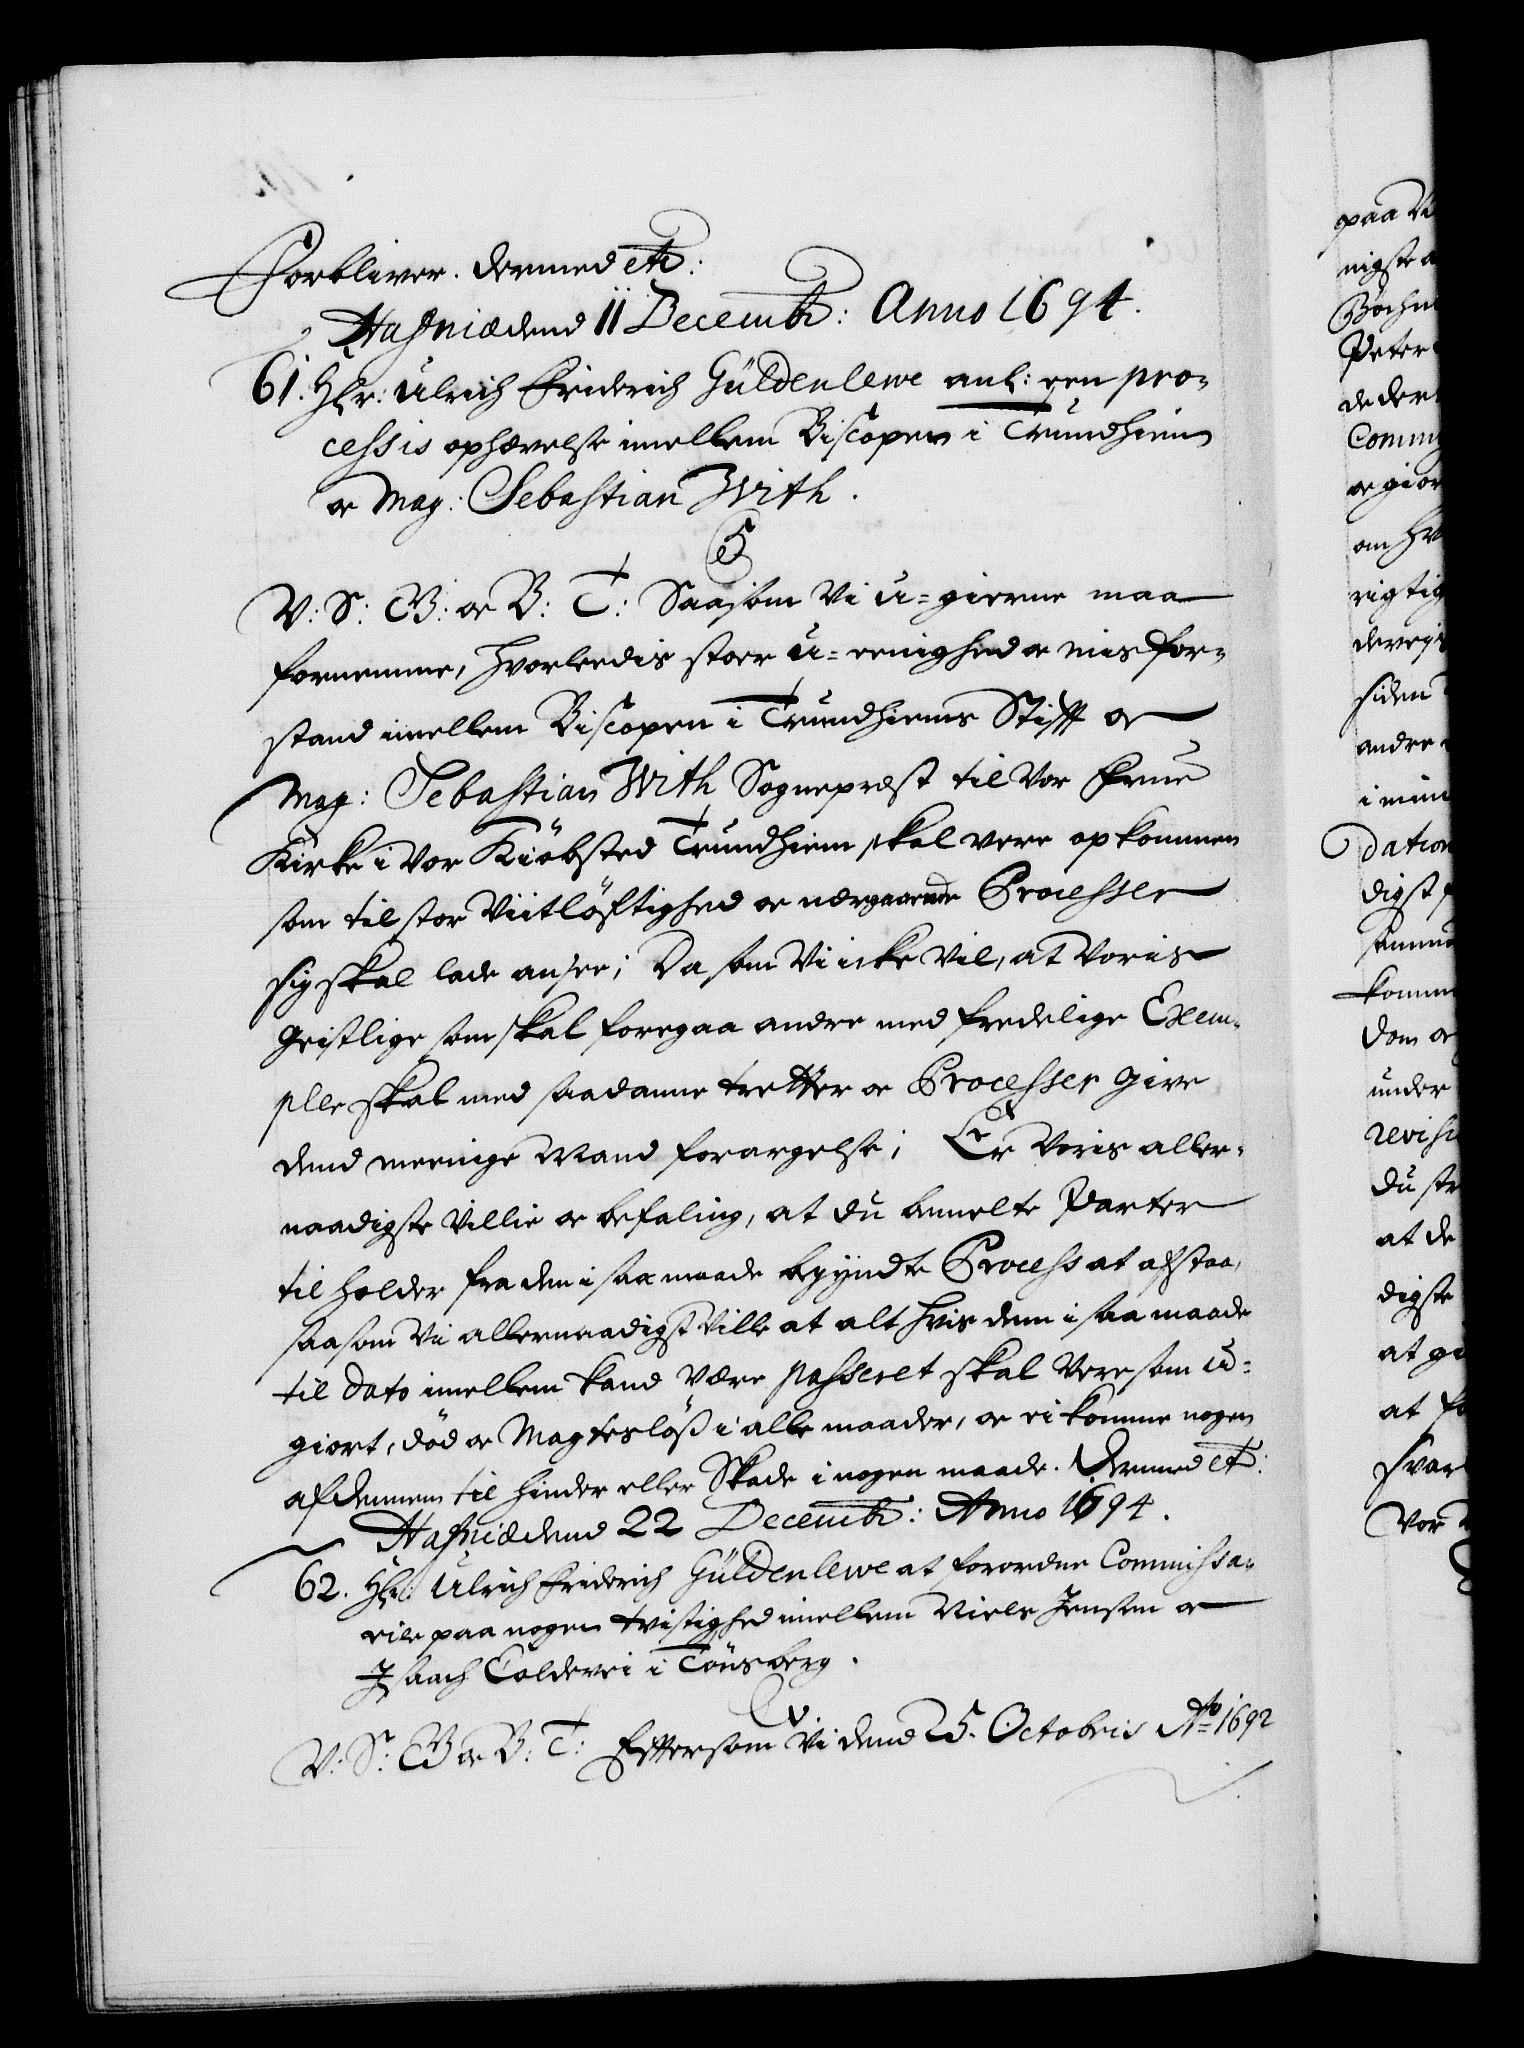 Forbliver. Dermed etc:
Hafniæ dend 11 Decembr: Anno 1694.
61. Hr: Ulrich Friderich Güldenlewe anl: een pro-
cessis ophævelse imellem Biscopen i Trundhiem
oc Mag: Sebastian With.
V: S: G: oc B: T: Saasom Vi u-gierne maa
fornemme, hvorledis stoer u-eenighed oc misfor-
stand imellem Biscopen i Trundhiems Stifft oc
Mag: Sebastian With Sogneprest til Vor Frue
Kirke i Vor Kiøbsted Trundhiem skal vere opkommen
som til stor Viitløftighed oc nærgaaende Processer
sig skal lade ansee; Da som Vi icke vil, at Voris
Geistlige som skal foregaa andre med fredelige Exem-
pler skal med saadanne tretter oc Processer give
dend meenige Mand forargelse; Er Voris aller-
naadigste Villie oc befaling, at du bemelte Parter
tilholder fra den i saa maade begyndte Process at afstaa,
saasom Vi allernaadigst Ville at alt hvis dem i saa maade
til dato imellem kand være passeret skal Vere som u-
giort, død oc Magtesløß i alle maader, oc ei komme nogen
af dennem til hinder eller Skade i nogen maade. Dermed etc:
Hafniæ dend 22 Decembr: Anno 1694.
62. Hr: Ulrich Friderich Güldenlewe at forordne Commissa-
rier paa nogen tvistighed imellem Niels Jensen oc
Isaach Coldevei i Tønsberg.
V: S: G oc B: T: Eftersom Vi dend 25. Octobris Ao 1692
paa Vi
nigste a
Peter
de der
Comm
oc gior
om hv
rigtig
siden
andre
i min
dation
digst
komm
dom oc
under
revisi
du str
at de
digste
at gi
at fo
svar
Vor